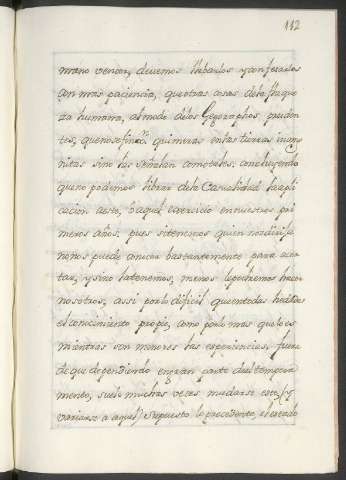 112
mano vencer, devemos llebarlos y confesarlos
con mas paciencia, que otras cosas de la flaque
za humana, al modo de los Geographos pruden
tes, que no se fingen quimeras en las tierras incog
nitas sino las señalan como tales: concluyendo
que no podemos librar de la Casualidad la apli
cacion a este, ò aquel exercicio en nuestros pri
meros años, pues si tenemos quien nos dirija
no nos puede conocer bastantemente para acer
tar, y si no la tenemos, menos lo podremos hacer
nosotros, assi por lo dificil que en todas hedades
el conocimiento propio, como por lo mas que lo es
mientras son menores las experiencias, fuera
de que dependiendo en gran parte del tempera
mento, suele muchas veces mudarse este (y
variarse a aquel) Supuesto lo precedente, el estado